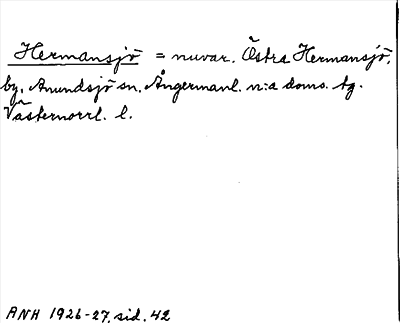 Hermansjö = nuvar. Östra Hermansjö,
by, Anundsjö sn, Ångermanl. n:a doms. tg.
Västernorrl. l.
ANH 1926-27, sid. 42